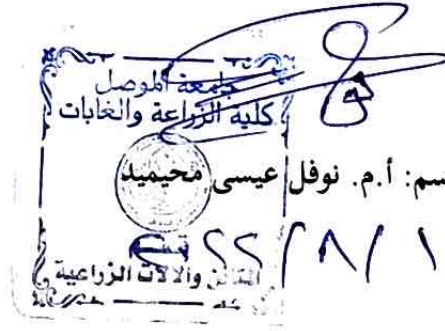 جامعة الموصل
كلية الزراعة والغابات
سم: أ.م. نوفل عيسى محيميد
قسم
المكائن والآلات الزراعية